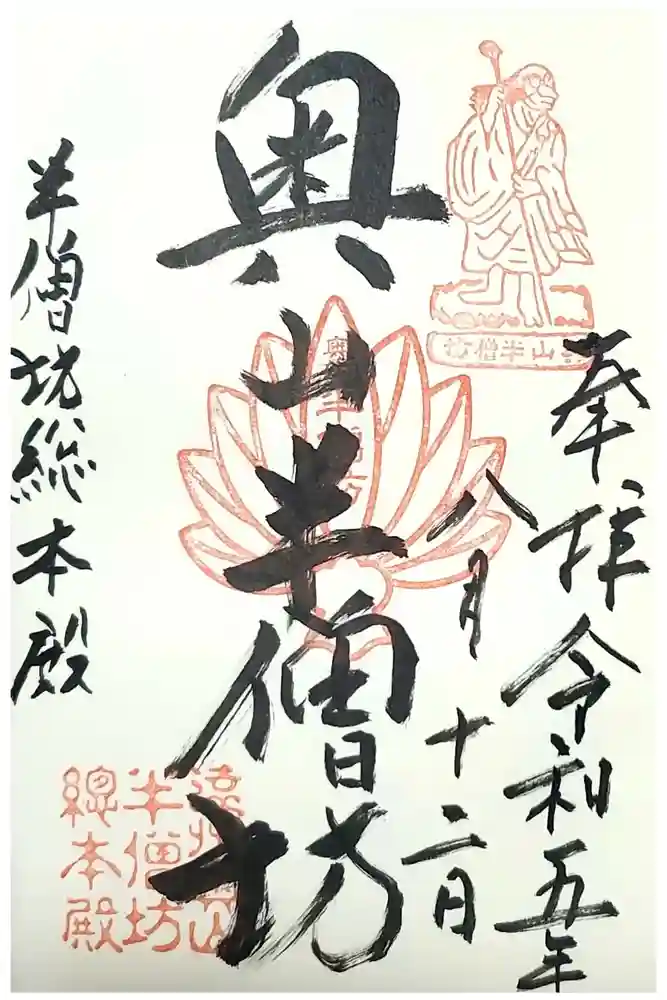 奉拝 令和五年
八月十二日
奥山半僧坊
半僧坊総本殿
奥山半僧坊
遠州奥山
半僧坊
總本殿